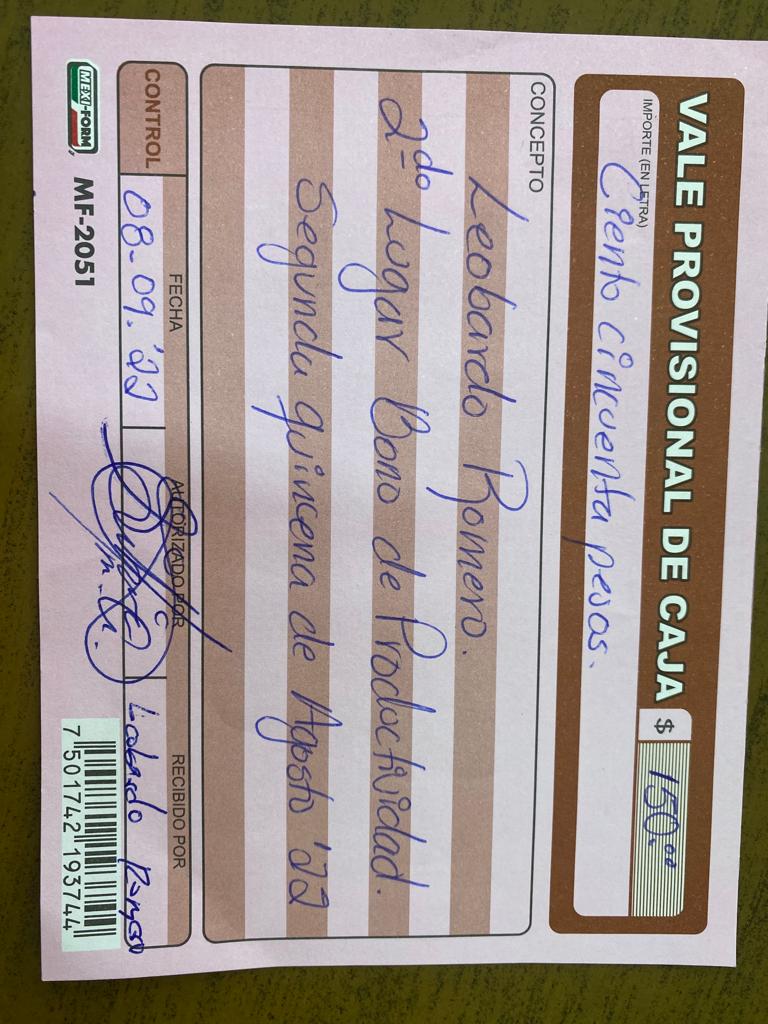 VALE PROVISIONAL DE CAJA $ 150.00
IMPORTE (EN LETRA)
Ciento cincuenta pesos.
CONCEPTO
Leobardo Romero.
2do Lugar Bono de Productividad.
Segunda quincena de Agosto '22
CONTROL
FECHA
AUTORIZADO POR
RECIBIDO POR
08-09.'22
Leobardo
MEXI-FORM
MF-2051
7 501742 193744